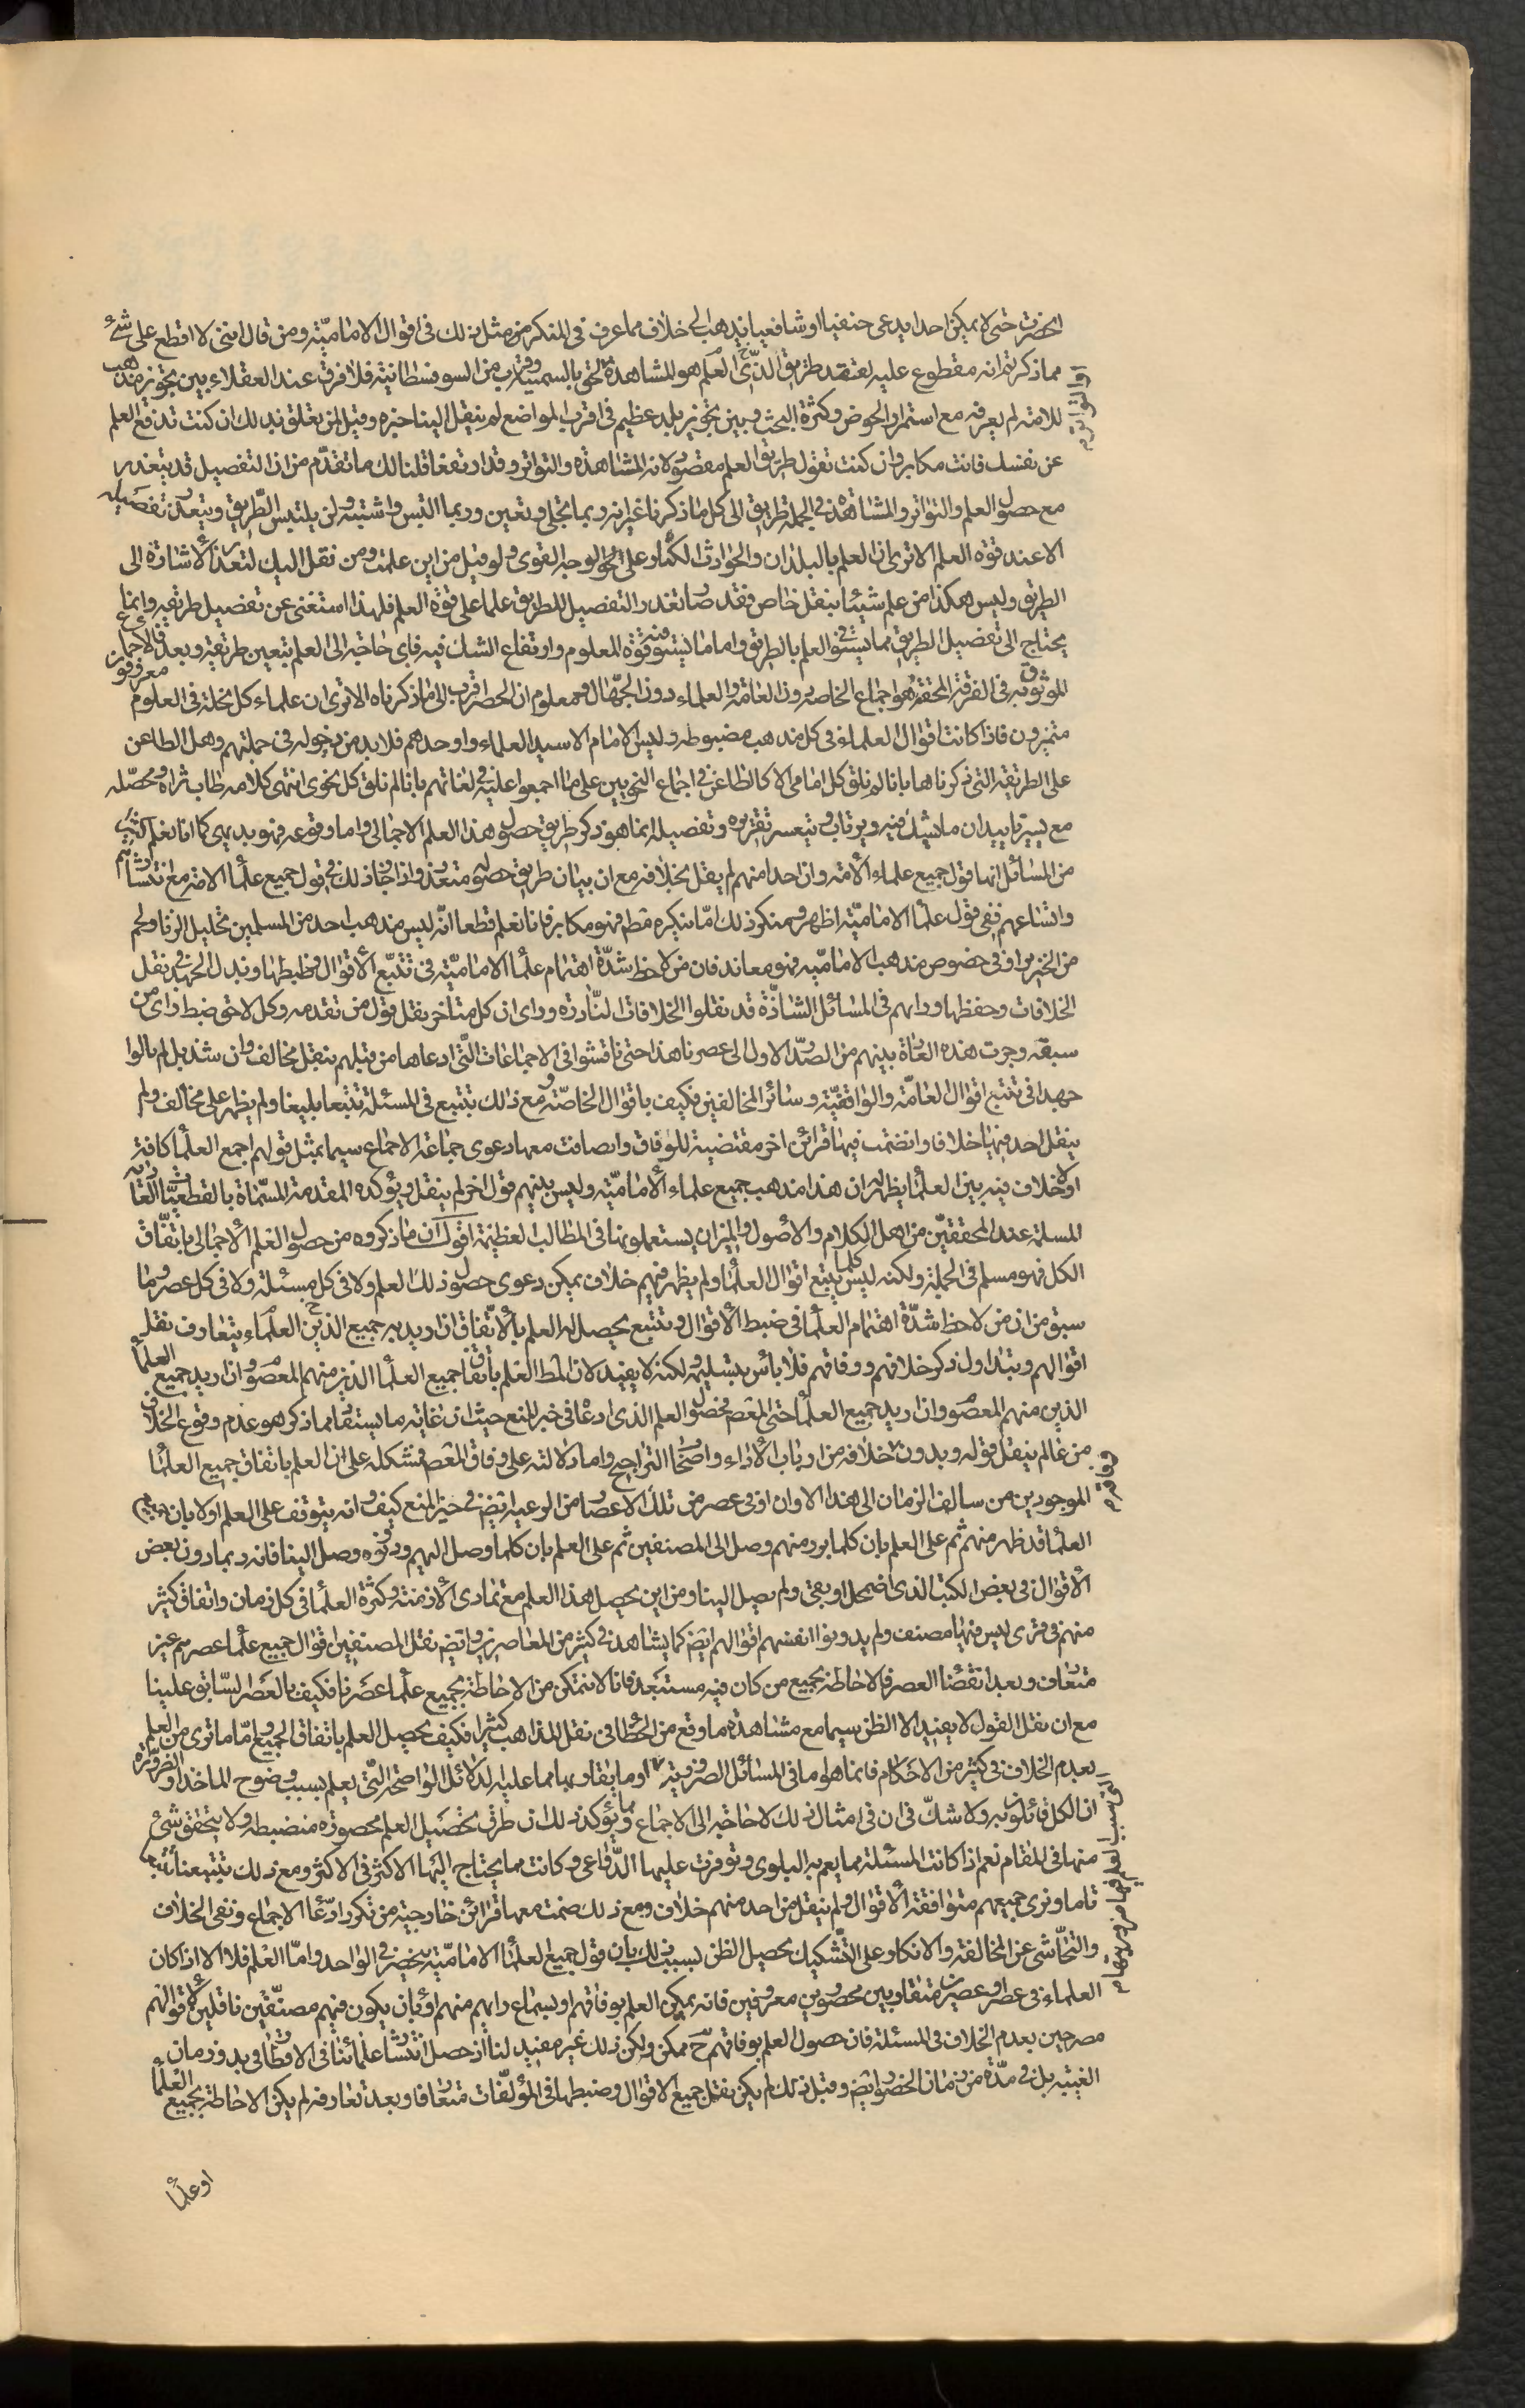 انحضرت حتى لا يمكن احدا يدعى حنفيا او شافعيا يذهب الى خلاف ما عرف فى المنكر من مثل ذلك فى اقوال الاماميّة ومن قال اننى لا اقطع على شئ
مما ذكرتم انه مقطوع عليه لفقد طريق الذى العلم هو المشاهدة لحق بالسمنية وقرب من السوفسطائية فلا فرق عند العقلاء بين تجويز مذهب
للامة لم يعرفه مع استمرار الخوض وكثرة البحث وبين تجويز بلد عظيم فى اقرب المواضع لم ينقل الينا خبره وقيل لمن يتعلق بذلك ان كنت تدفع العلم
عن نفسك فانت مكابر وان كنت تقول طريق العلم مقصور لانه المشاهدة والتواتر وقد ارتفعا قلنا لك ما تقدّم من ان التفصيل قد يتعذر
مع حصول العلم والتواتر والمشاهدة فى الجملة طريق الى كل ما ذكرنا غير انه ربما تجلى وتعين وربما التبس واشتبه ولن يلتبس الطّريق ويتعذر تفصيله
الا عند قوة العلم الا ترى ان العلم بالبلدان والحوادث الكبار على نحو الوجه القوى ولو قيل من اين علمت ومن نقل اليك لتعذر الاشارة الى
الطريق وليس هكذا من علم شيئا بنقل خاص فقد صار تعذر التفصيل للطريق علما على قوة العلم فلهذا استغنى عن تفصيل طريقه وانما
يحتاج الى تفصيل الطريق مما يستوفى العلم بالطريق واما ما يستوفى منه قوة المعلوم وارتفاع الشك فيه فاى حاجة الى العلم بتعين طريقه وبعد فالاجماع
الموثوق به فى الفرقة المحقة هو اجماع الخاصة دون العامة والعلماء دون الجهال ومعلوم ان الحصر اقرب الى ما ذكرناه الا ترى ان علماء كل نحلة فى العلوم معروفون
متميزون فاذا كانت اقوال العلماء فى كل مذهب مضبوطة وليس الامام الا سيد العلماء واوحدهم فلا بد من دخوله فى جملتهم وهل الطاعن
على الطريقة التى ذكرناها بانا لم نلق كل امامى الا كالطاعن فى اجماع النحويين على ما اجمعوا عليه فى لغاتهم بانا لم نلق كل نحوى انتهى كلامه طاب ثراه ومحصّله
مع يسير تاييد ان ما يشك فيه ويرتاب ويتعسر تقريره وتفصيله انما هو ذكر طريق حصول هذا العلم الاجمالى واما وقوعه فهو بديهى كما انا نعلم كثيرا
من المسائل انها قول جميع علماء الامة وان احدا منهم لم يقل بخلافه مع ان بيان طريق حصوله متعذر واذا جاز ذلك فى قول جميع علما الامة مع انتشارهم
واتساعهم ففى قول علما الاماميّة اظهر ومنكر ذلك امّا ينكره مط فهو مكابر فانا نعلم قطعا انّه ليس مذهب احد من المسلمين تحليل الزنا ولحم
من الخنزير او فى خصوص مذهب الاماميّة فهو معاند فان من لاحظ شدّة اهتمام علما الاماميّة فى تتبّع الاقوال وضبطها وبذل الجهد فى نقل
الخلافات وحفظها ودابهم فى المسائل الشاذّة قد نقلوا الخلافات النّادرة وراى ان كل متأخر ينقل قول من تقدمه وكل لاحق ضبط راى من
سبقه وجرت هذه العادة بينهم من الصدر الاول الى عصرنا هذا حتى ناقشوا فى الاجماعات الّتى ادعاها من قبلهم بنقل مخالف وان شذ بل لم يالوا
جهدا فى تتبع اقوال العامّة والواقفيّة وسائر المخالفين فكيف باقوال الخاصّة ومع ذلك يتتبع فى المسئلة تتبعا بليغا ولم يظهر على مخالف ولم
ينقل احد فيها خلافا وانضمت فيها قرائن اخر مقتضية للوفاق وانضافت معها دعوى جماعة الاجماع سيما بمثل قولهم اجمع العلما كافة
او لا خلاف فيه بين العلما يظهر له ان هذا مذهب جميع علماء الاماميّة وليس بينهم قول اخر لم ينقل ويؤكده المقدمة المسمّاة بالقطعيّات العادية
المسلمة عند المحققيّن من اهل الكلام والاصول والميزان يستعلمونها فى المطالب العظيمة اقول ان ما ذكروه من حصول العلم الاجمالى باتّفاق
الكل فهو مسلم فى الجملة ولكنه ليس كلما يتتبع اقوال العلما ولم يظهر فيهم خلاف يمكن دعوى حصول ذلك العلم ولا فى كل مسئلة ولا فى كل عصر وما
سبق من ان من لاحظ شدّة اهتمام العلما فى ضبط الاقوال وتتبع يحصل له العلم بالاتّفاق ان اريد به جميع الذين العلماء يتعارف نقل
اقوالهم ويتداول ذكر خلافهم ووفاقهم فلا بأس بتسليمه ولكنه لا يفيد لان المط العلم باتفاق جميع العلما الذين منهم المعصوم وان اريد جميع العلما
الذين منهم المعصوم وان اريد جميع العلما حتى المعصم فحصول العلم الذى ادعا فى خبر المنع حيث ان غاية ما يستفاد مما ذكر هو عدم وقوع الخلاف
من عالم ينقل قوله ويدون خلافه من ارباب الاراء واصحاب التراجيح واما دلالته على وفاق المعصم فمشكلة على ان العلم باتفاق جميع العلما
الموجودين من سالف الزمان الى هذا الاوان او فى عصر من تلك الاعصار من الرعية ايضم فى حيز المنع كيف وانه يتوقف على العلم اولا بان
العلما قد ظهر منهم ثم على العلم بان كلما برد منهم وصل الى المصنفين ثم على العلم بان كلما وصل اليهم ودونوه وصل الينا فانه ربما دون بعض
الاقوال فى بعض الكتب الذى اضمحل او بقى ولم يصل الينا ومن اين يحصل هذا العلم مع تمادى الازمنة وكثرة العلما فى كل زمان واتفاق كثير
منهم فى قرى ليس فيها مصنف ولم يدونوا انفسهم اقوالهم ايضم كما يشاهد فى كثير من المعاصرين وايضم نقل المصنفين اقوال جميع علما عصرهم غير
متعارف وبعد انقضاء العصر فالاحاطة بجميع من كان فيه مستبعد فانا لا نتمكن من الاحاطة بجميع علما عصرنا فكيف بالعصر السّابق علينا
مع ان نقل القول لا يفيد الا الظن سيما مع مشاهدة ما وقع من الخطا فى نقل المذاهب كثيرا فكيف يحصل العلم باتفاق الجميع وامّا ما ترى من العلم
بعدم الخلاف فى كثير من الاحكام فانما هو اما فى المسائل الضرورية او ما يقاربها مما عليه الدلائل الواضحة الّتى يعلم بسبب وضوح الماخذ او الضرورة
ان الكل قائلون به ولا شكّ فى ان فى امثال ذلك لا حاجة الى الاجماع ومما يؤكد ذلك ان طرق تحصيل العلم محصورة منضبطة ولا يتحقق شئ
منها فى المقام نعم اذا كانت المسئلة مما يعم به البلوى وتوفرت عليها الدّواعى وكانت مما يحتاج اليها الاكثر فى الاكثر ومع ذلك تتبعنا
تاما ونرى جميعهم متوافقة الاقوال ولم ينقل من احد منهم خلاف ومع ذلك ضمت معها قرائن خارجية من تكرر ادّعا الاجماع ونفى الخلاف
والتحّاشى عن المخالفة والانكار على التّشكيك يحصل الظن بسبب ذلك بان قول جميع العلما الاماميّة ينحصر فى الواحد وامّا العلم فلا الا اذا كان
العلماء فى عصر او عصرين متقاربين محصورين معروفين فانه يمكن العلم بوفاقهم او بسماع رايهم منهم او بان يكون فيهم مصنّفين ناقلين لاقوالهم
مصرحين بعدم الخلاف فى المسئلة فان حصول العلم بوفاقهم ح ممكن ولكن ذلك غير مفيد لنا اذ حصل انتشار علمائنا فى الاقطار فى بدو زمان
الغيبة بل فى مدّة من زمان الحضور ايضم وقبل ذلك لم يكن نقل جميع الاقوال وضبطها فى المؤلّفات متعارفا وبعد تعارفه لم يكن الاحاطة بجميع العلما
او علما